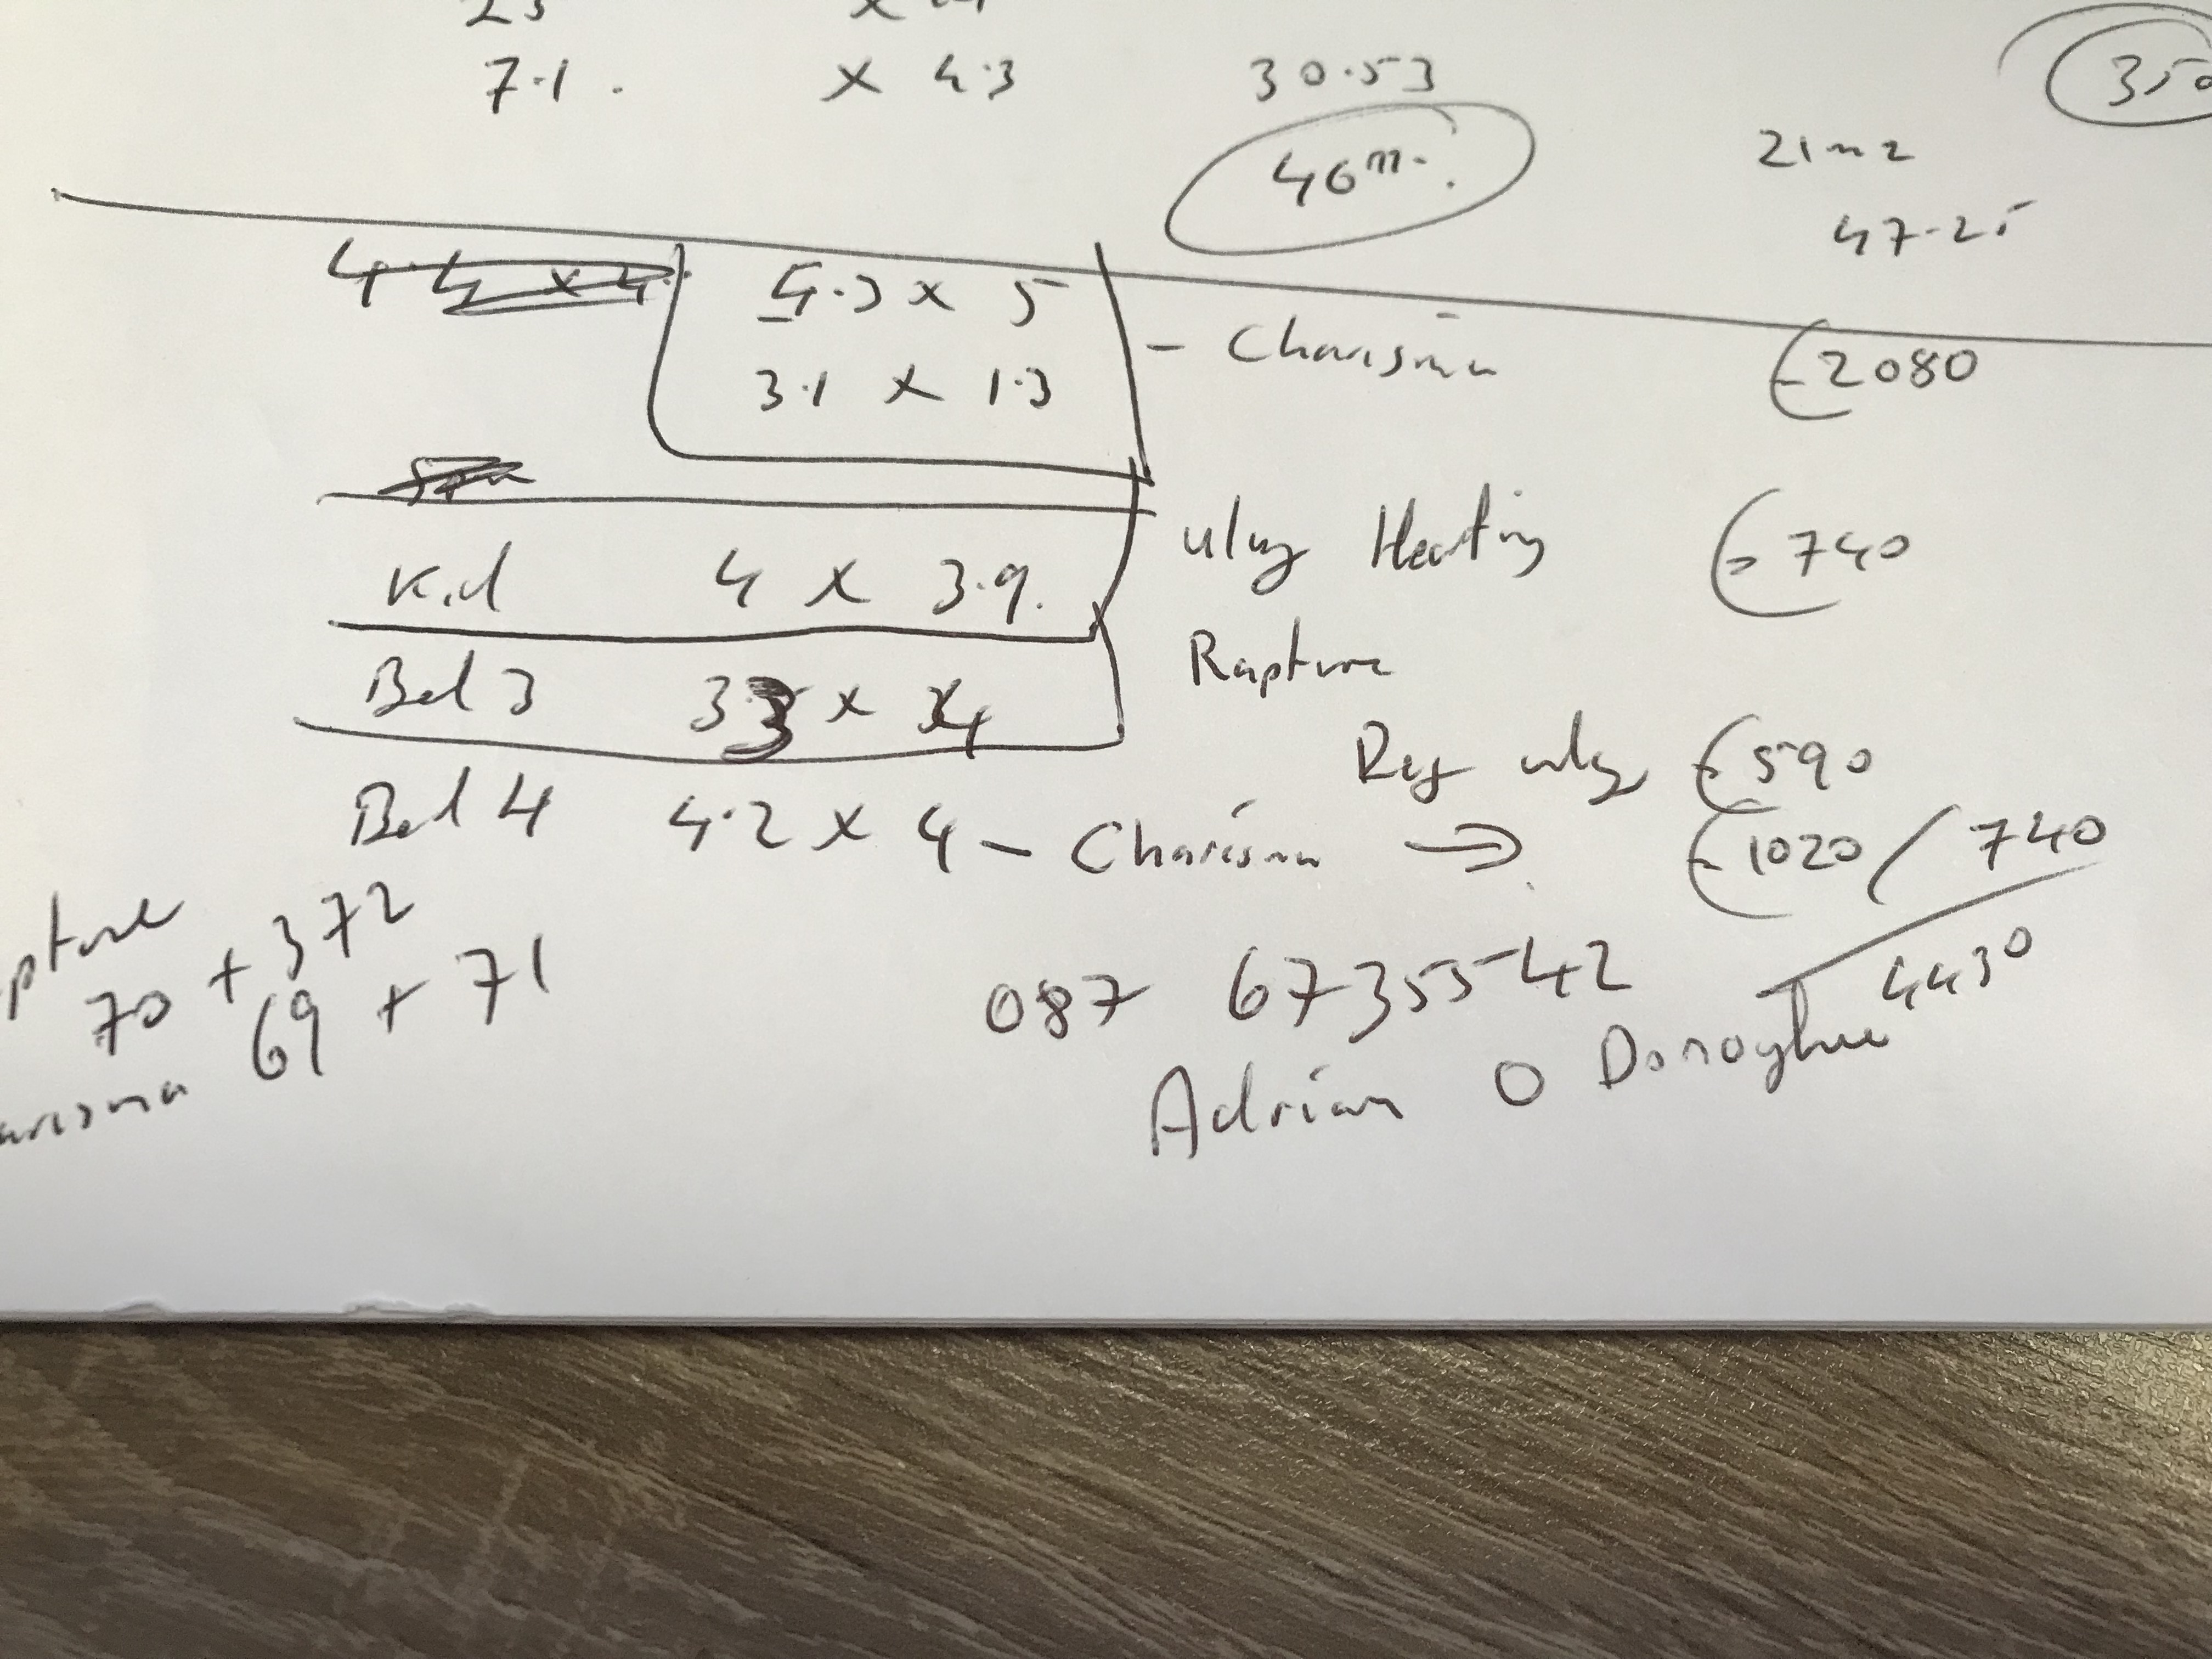 7.1. x 4.3 30.53 350
46m. 21m2
47.25
4.3 x 5
3.1 x 1.3 - Charisma €2080
Kid 4 x 3.9. ulay Heating €740
Bed 3 33 x 4 Rapture
Reg ulay €590
Bed 4 4.2 x 4 - Charisma → €1020 / 740
pture 70 + 372 4430
arisma 69 + 71
087 6735542
Adrian O Donoghue